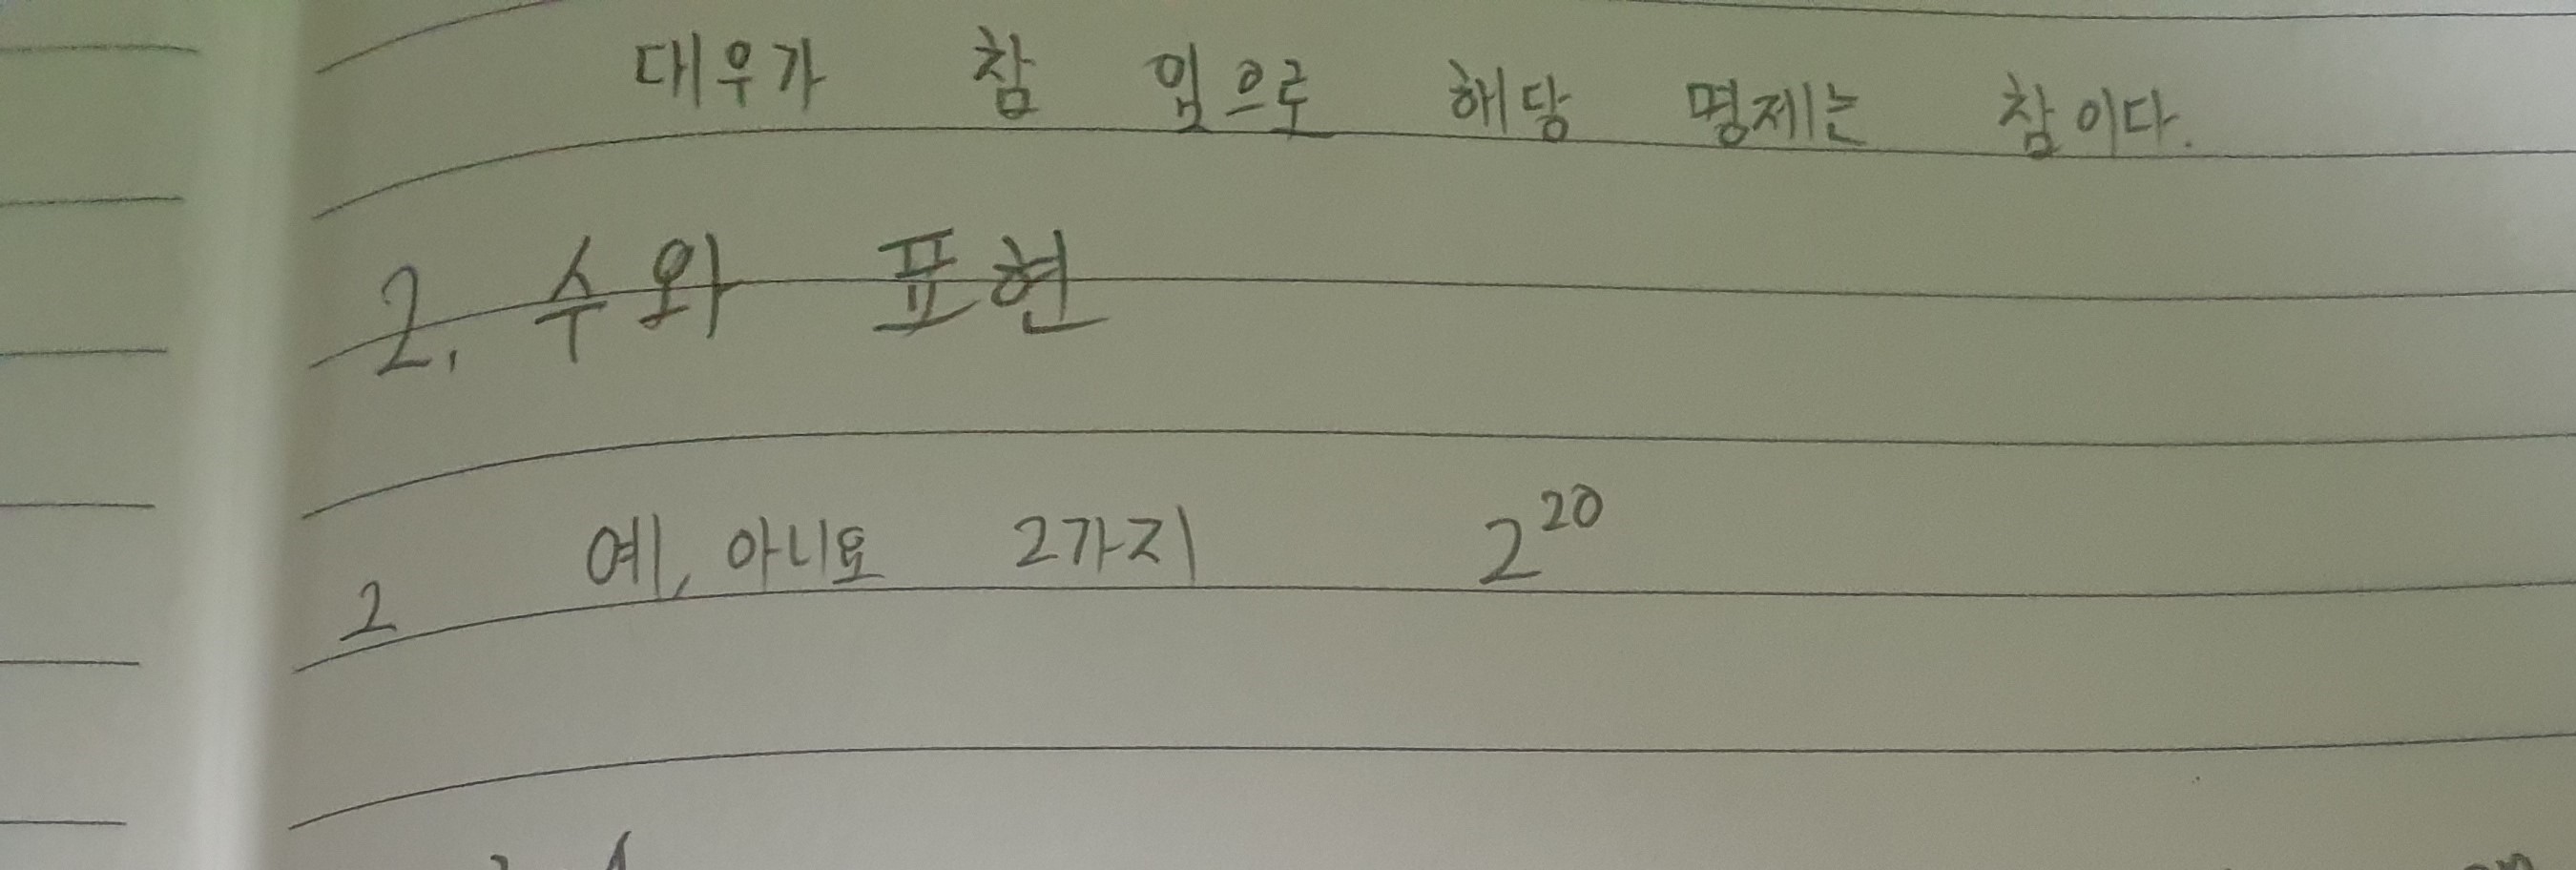 대우가 참 임으로 해당 명제는 참이다.
2. 수와 표현
2 예, 아니요 2가지 2²⁰